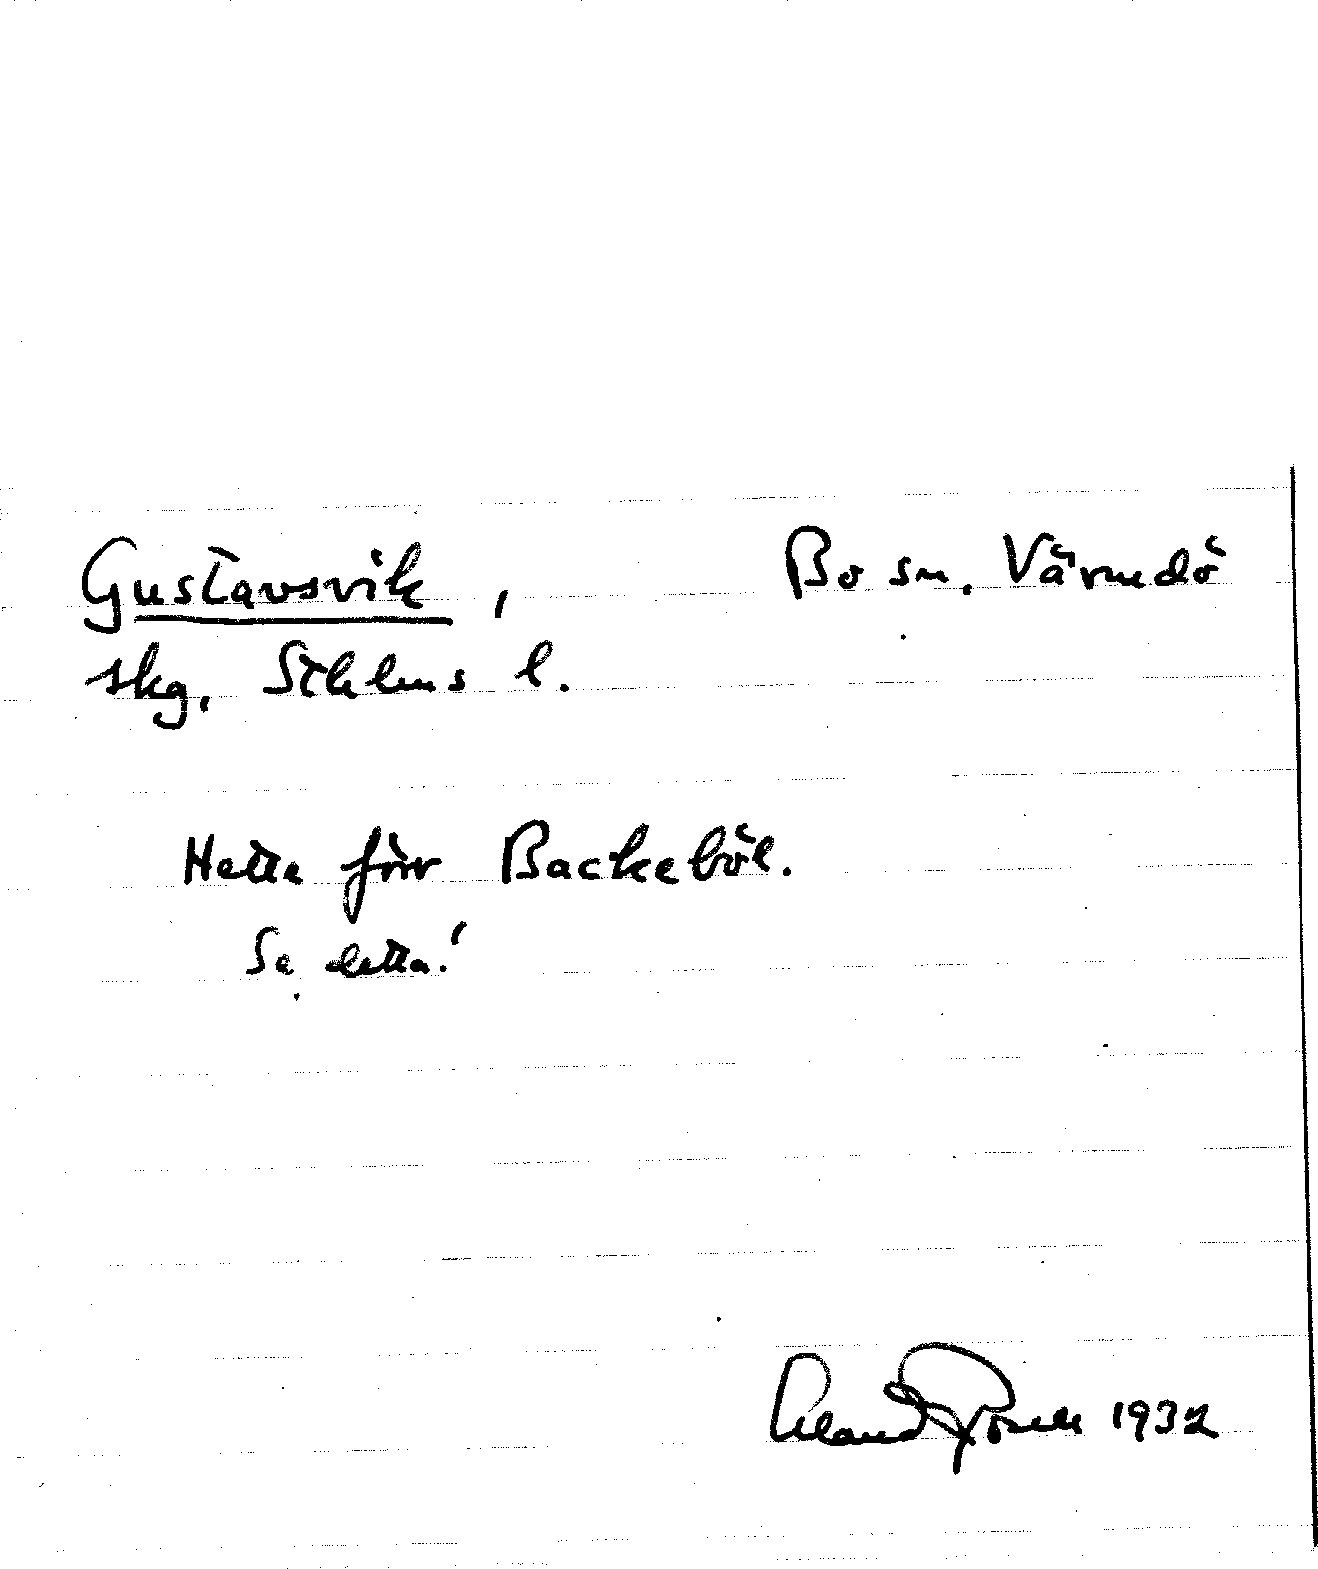 Gustavsvik, Bo sn. Värmdö
skg. Sthlms l.
Hette förr Backeböl.
Se detta!
1932